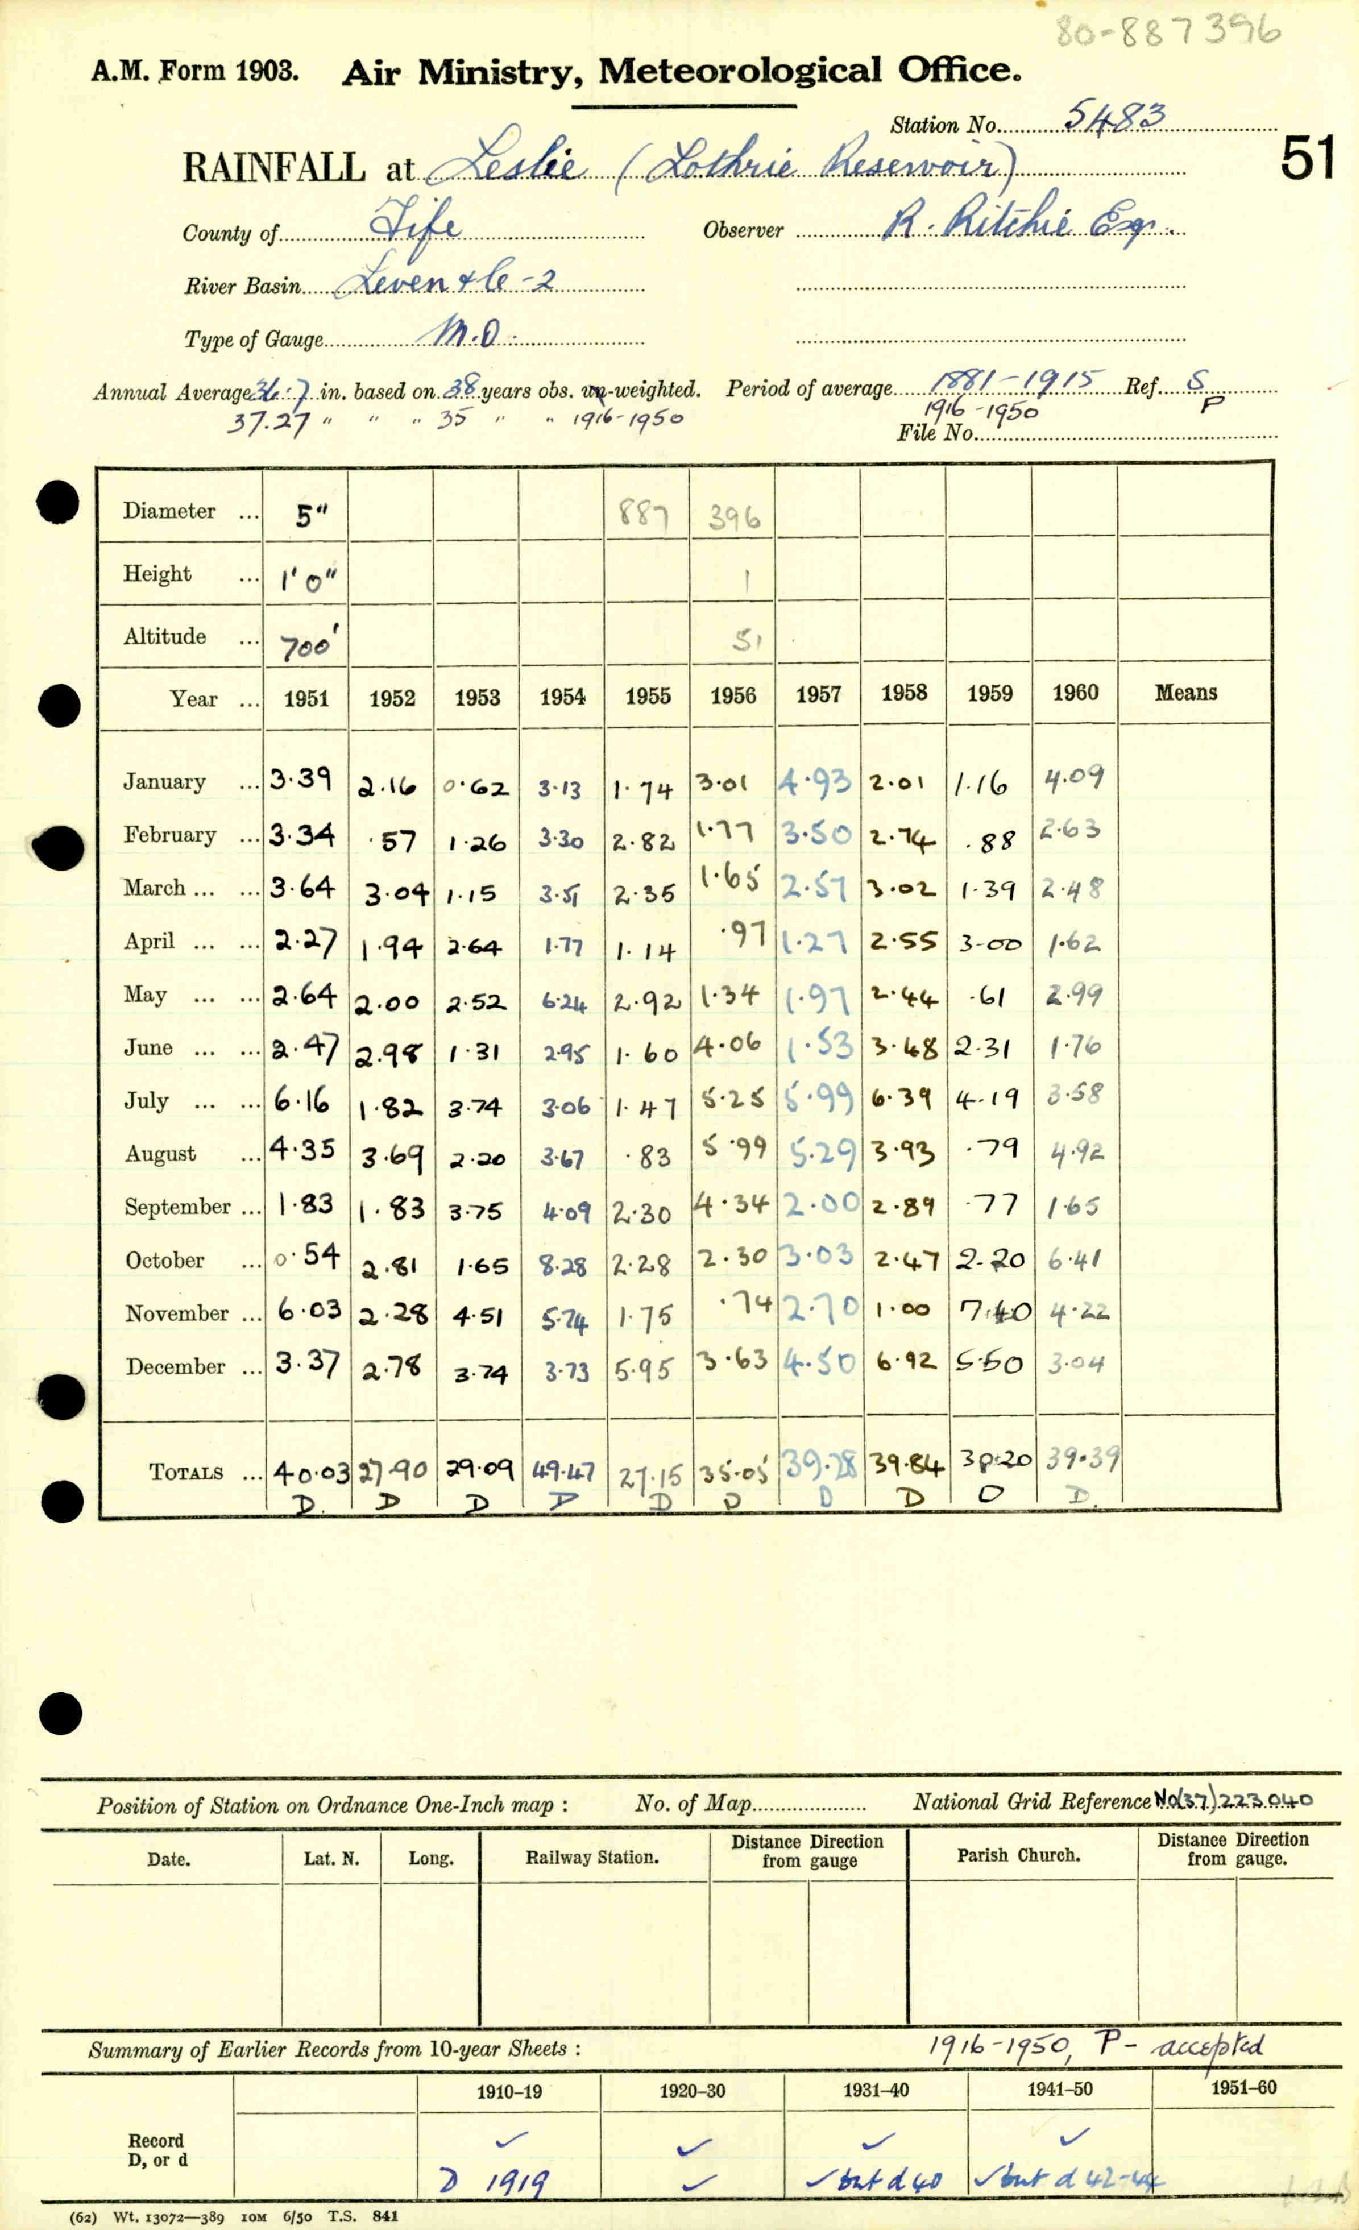 80-887396
A.M. Form 1903. Air Ministry, Meteorological Office.
Station No. 5483
51
RAINFALL at Leslie (Lothrie Reservoir)
County of Fife Observer R. Ritchie Esq.
River Basin Leven & c-2
Type of Gauge M.O.
Annual Average 36.7 in. based on 38 years obs. un-weighted. Period of average 1881-1915 Ref. S
37.27 " " " 35 " " 1916-1950 1916-1950 P
File No.
Diameter ... 5" 887 396
Height ... 1'0" 1
Altitude ... 700' 51
Year ... 1951 1952 1953 1954 1955 1956 1957 1958 1959 1960 Means
January ... 3.39 2.16 0.62 3.13 1.74 3.01 4.93 2.01 1.16 4.09
February ... 3.34 .57 1.26 3.30 2.82 1.77 3.50 2.74 .88 2.63
March ... ... 3.64 3.04 1.15 3.51 2.35 1.65 2.57 3.02 1.39 2.48
April ... ... 2.27 1.94 2.64 1.77 1.14 .97 1.27 2.55 3.00 1.62
May ... ... 2.64 2.00 2.52 6.24 2.92 1.34 1.97 2.44 .61 2.99
June ... ... 2.47 2.98 1.31 2.95 1.60 4.06 1.53 3.48 2.31 1.76
July ... ... 6.16 1.82 3.74 3.06 1.47 5.25 5.99 6.39 4.19 3.58
August ... 4.35 3.69 2.20 3.67 .83 5.99 5.29 3.93 .79 4.92
September ... 1.83 1.83 3.75 4.09 2.30 4.34 2.00 2.89 .77 1.65
October ... 0.54 2.81 1.65 8.28 2.28 2.30 3.03 2.47 2.20 6.41
November ... 6.03 2.28 4.51 5.74 1.75 .74 2.70 1.00 7.40 4.22
December ... 3.37 2.78 3.74 3.73 5.95 3.63 4.50 6.92 5.50 3.04
TOTALS ... 40.03 27.90 29.09 49.47 27.15 35.05 39.28 39.84 30.20 39.39
D. D D D D D D D D D.
Position of Station on Ordnance One-Inch map : No. of Map National Grid Reference No(37)223040
Date. Lat. N. Long. Railway Station. Distance Direction from gauge Parish Church. Distance Direction from gauge.
Summary of Earlier Records from 10-year Sheets : 1916-1950, P - accepted
1910–19 1920–30 1931–40 1941–50 1951–60
Record ✓ ✓ ✓ ✓
D, or d D 1919 ✓ ✓ but d 40 ✓ but d 42-44
(62) Wt. 13072—389 10M 6/50 T.S. 841